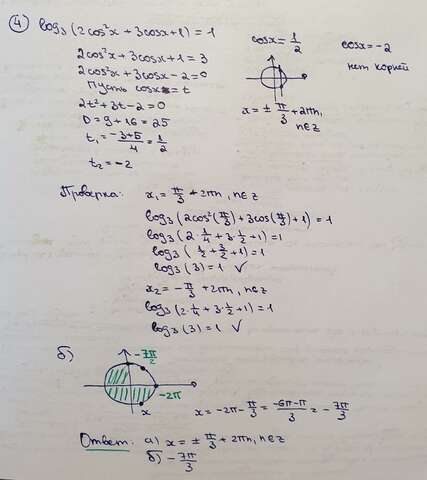 ④ log₃(2cos²x + 3cosx + 1) = 1
2cos²x + 3cosx + 1 = 3
2cos²x + 3cosx - 2 = 0
Пусть cosx = t
2t² + 3t - 2 = 0
D = 9 + 16 = 25
t₁ = (-3+5)/4 = 1/2
t₂ = -2
cosx = 1/2
x = ± π/3 + 2πn,
n∈z
cosx = -2
нет корней
Проверка: x₁ = π/3 + 2πn, n∈z
log₃(2cos²(π/3) + 3cos(π/3) + 1) = 1
log₃(2·1/4 + 3·1/2 + 1) = 1
log₃(1/2 + 3/2 + 1) = 1
log₃(3) = 1 ✓
x₂ = -π/3 + 2πn, n∈z
log₃(2·1/4 + 3·1/2 + 1) = 1
log₃(3) = 1 ✓
б) -7π/2
-2π
x
x = -2π - π/3 = (-6π-π)/3 = -7π/3
Ответ: а) x = ± π/3 + 2πn, n∈z
б) -7π/3